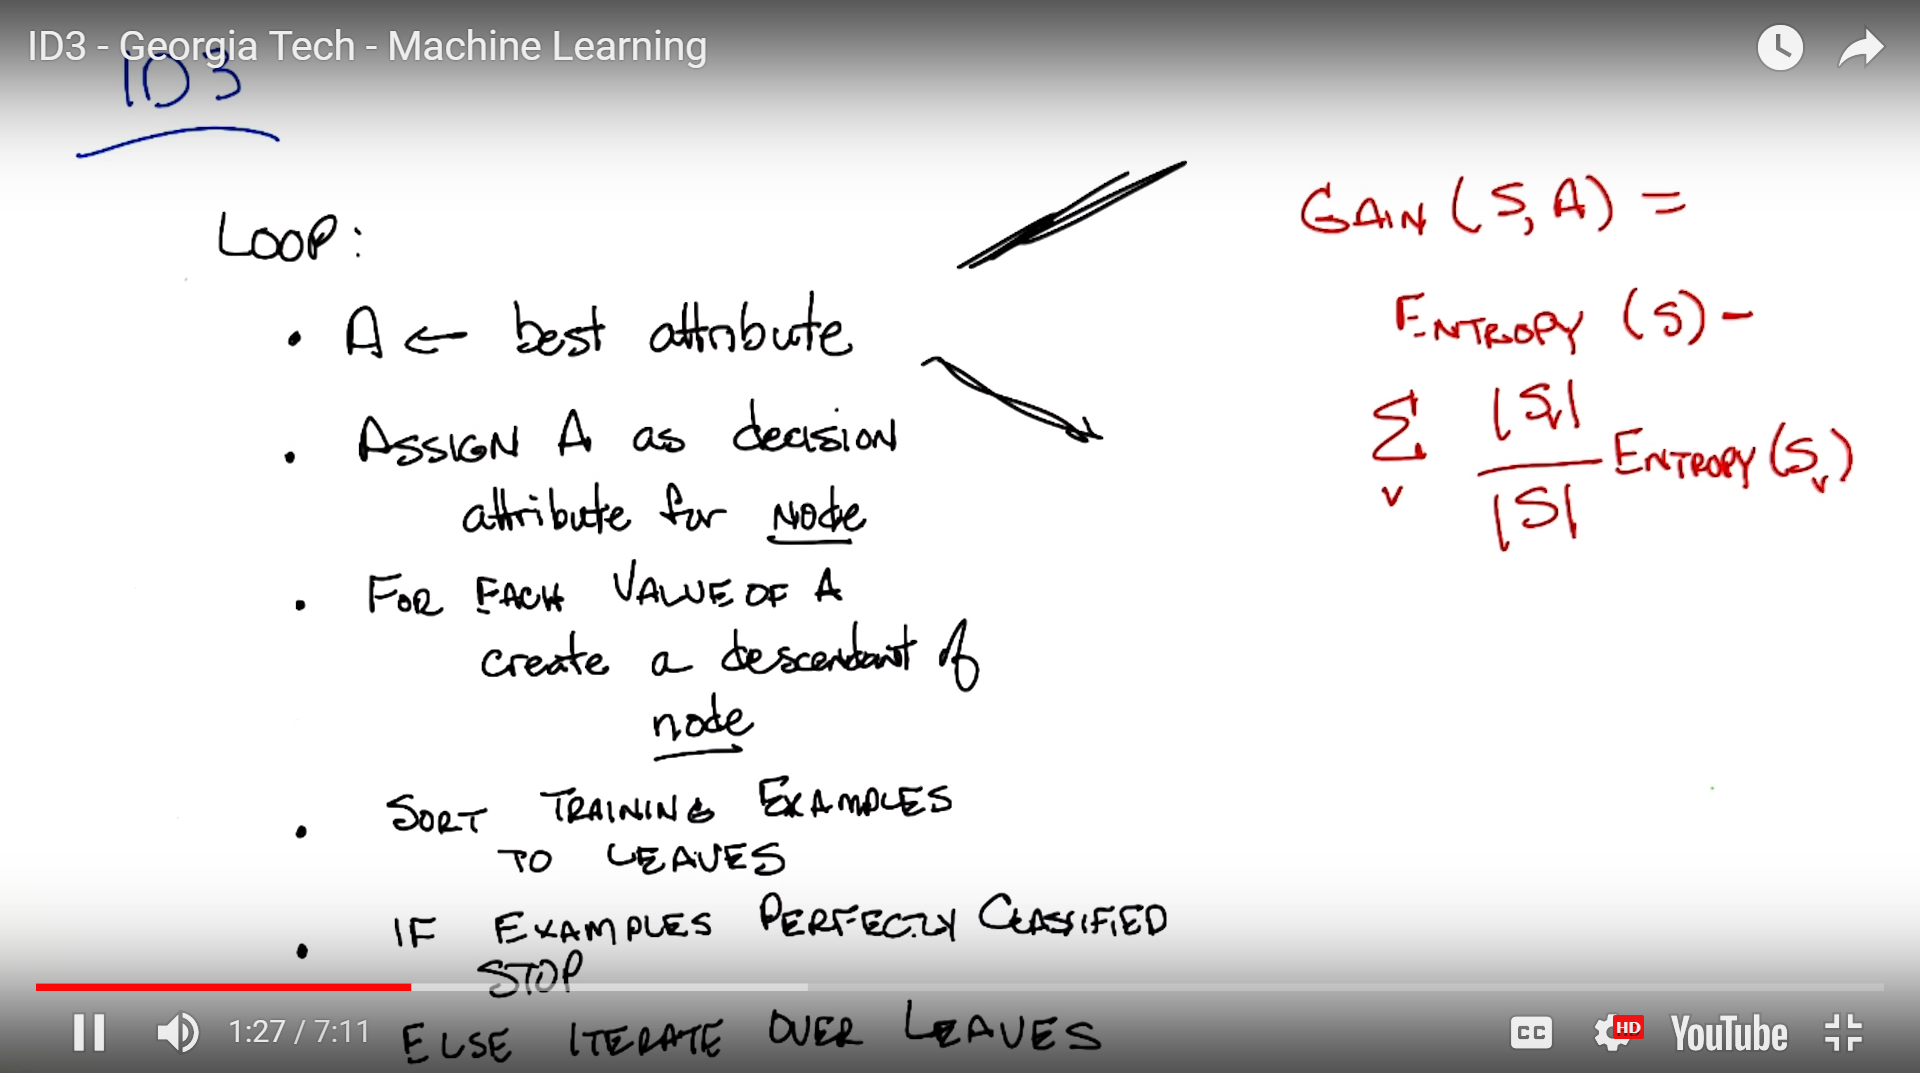 ID3 - Georgia Tech - Machine Learning
ID3
LOOP:
• A ← best attribute
• ASSIGN A as decision
attribute for NODE
• FOR EACH VALUE OF A
create a descendant of
node
• SORT TRAINING EXAMPLES
TO LEAVES
• IF EXAMPLES PERFECTLY CLASSIFIED
STOP
ELSE ITERATE OVER LEAVES
GAIN (S, A) =
ENTROPY (S) -
∑ |Sv|
v |S| ENTROPY (Sv)
1:27 / 7:11
CC
HD
YouTube